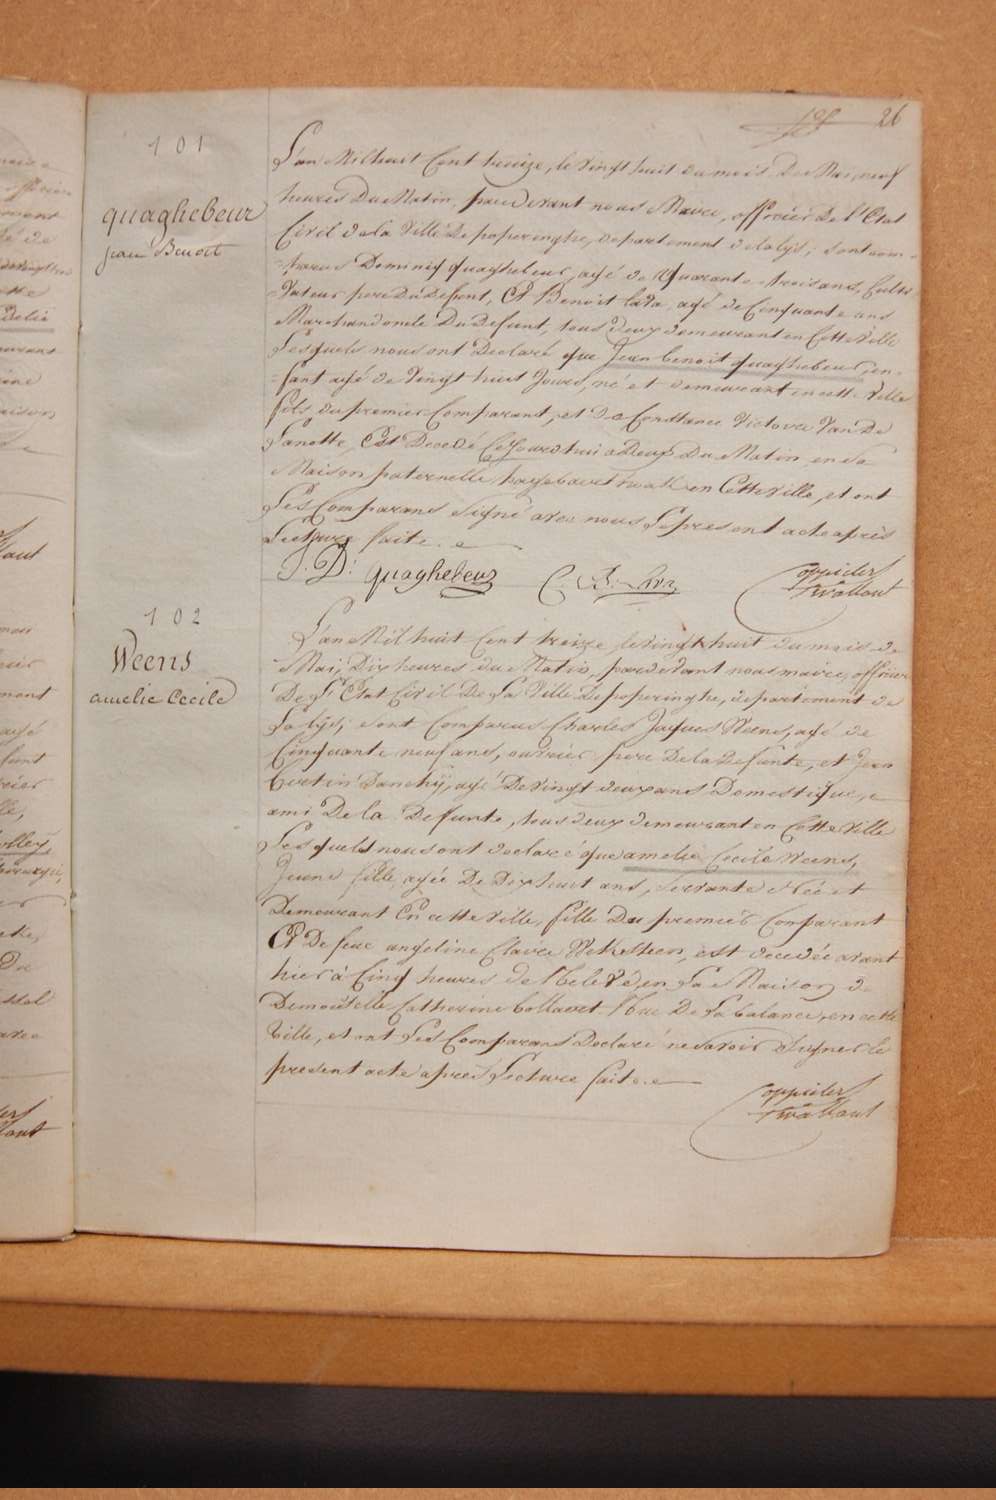 26
101
quaghebeur
jean Benoit
L'an Mil huit Cent treize, le vingt huit du mois De Mai, neuf
heures Du Matin, pardevant nous Maire, officier De l'Etat
Civil de la Ville de poperinghe, departement de la lÿs, sont com=
=parus Dominiq quaghebeur, agé de Quarante-trois ans, Culti
vateur pere Du Defunt, Et Benoit agé de Cinquante ans
Marchand oncle Du Defunt, tous deux demeurant en Cette ville
Lesquels nous ont Declaré que Jean benoit quaghebeur, en=
=fant agé de Vingt huit Jours, né et demeurant en cette ville
fils du premier Comparant, et De Constance Victoire Van De
Lanotte, Est Decedé Cejourd'hui a Deux Du Matin en Sa
Maison paternelle, en Cette ville, et ont
Les Comparans signé avec nous Le present acte après
Lecture faite.
J. D. quaghebeur C. B.
102
Weens
amelie Cecile
L'an Mil huit Cent treize le vingt huit du mois de
Mai, Dix heures du Matin, pardevant nous maire, officier
De L'Etat Civil De La Ville de poperinghe, departement de
La lÿs, sont Comparus Charles Jaques Weens, agé de
Cinquante neuf ans, ouvrier pere De la Defunte, et Jean
Bertin Danchÿ, agé De vingt deux ans Domestique,
ami De la Defunte, tous deux demeurant en Cette ville
Lesquels nous ont declaré que amelie Cecile Weens,
Jeune fille, agée De Dix huit ans, servante Née et
Demeurant En cette ville, fille Du premier Comparant
Et De feue angeline Claire est decedée avant
hier à Cinq heures de en La Maison de
Demoiselle Catherine Rue De La balance, en cette
ville, et ont Les Comparans Declaré ne savoir Signer le
present acte après Lecture faite.